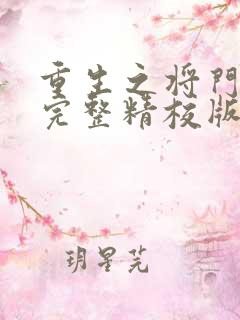 重生之将門
完整精校版
玥星芫